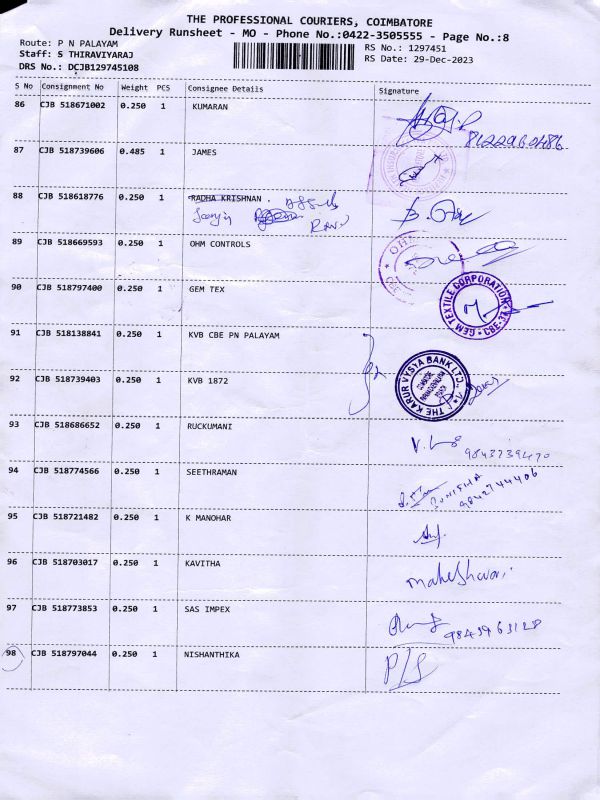 THE PROFESSIONAL COURIERS, COIMBATORE
Delivery Runsheet - MO - Phone No.:0422-3505555 - Page No.:8
Route: P N PALAYAM
Staff: S THIRAVIYARAJ
DRS No.: DCJB129745108
RS No.: 1297451
RS Date: 29-Dec-2023
S No Consignment No Weight PCS Consignee Details Signature
86 CJB 518671002 0.250 1 KUMARAN
87 CJB 518739606 0.485 1 JAMES
88 CJB 518618776 0.250 1 RADHA KRISHNAN
89 CJB 518669593 0.250 1 OHM CONTROLS
90 CJB 518797400 0.250 1 GEM TEX
GEM TEXTILE CORPORATION
91 CJB 518138841 0.250 1 KVB CBE PN PALAYAM
THE KARUR VYSYA BANK LTD.,
92 CJB 518739403 0.250 1 KVB 1872
93 CJB 518686652 0.250 1 RUCKUMANI
94 CJB 518774566 0.250 1 SEETHRAMAN
9842744406
95 CJB 518721482 0.250 1 K MANOHAR
96 CJB 518703017 0.250 1 KAVITHA
maheshwari
97 CJB 518773853 0.250 1 SAS IMPEX
98 CJB 518797044 0.250 1 NISHANTHIKA
P/S